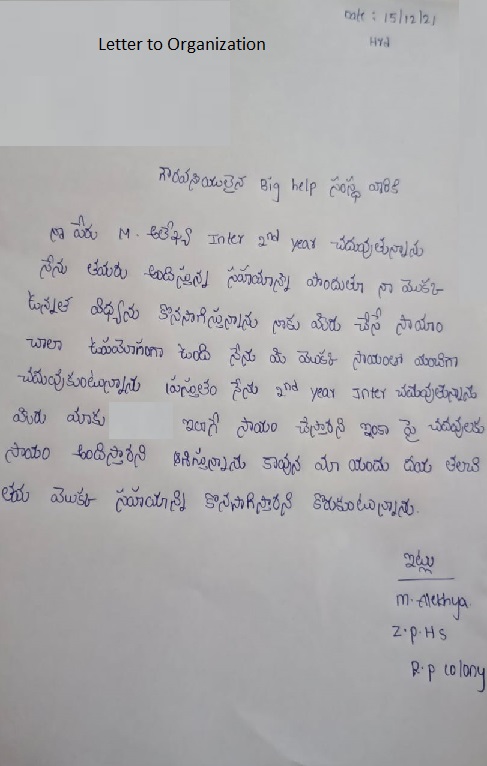 Date : 15/12/21
Letter to Organization
Hyd
గౌరవనీయులైన Big help సంస్థ వారికి
నా పేరు M. అలేఖ్య Inter 2nd year చదువుతున్నాను
నేను తమరు అందిస్తున్న సహాయాన్ని పొందుతూ నా యొక్క
ఉన్నత విధ్యను కొనసాగిస్తున్నాను నాకు మీరు చేసే సాయం
చాలా ఉపయోగంగా ఉంది నేను మీ యొక్క సాయంతో మంచిగా
చదువుకుంటున్నాను ప్రస్తుతం నేను 2nd year Inter చదువుతున్నాను
మీరు మాకు ఇలాగే సాయం చేస్తారని ఇంకా పై చదువులకు
సాయం అందిస్తారని ఆశిస్తున్నాను కావున మా యందు దయ తలచి
తమ యొక్క సహాయాన్ని కొనసాగిస్తారని కోరుకుంటున్నాను.
ఇట్లు
M. Alekhya
Z.P.Hs
R.P colony